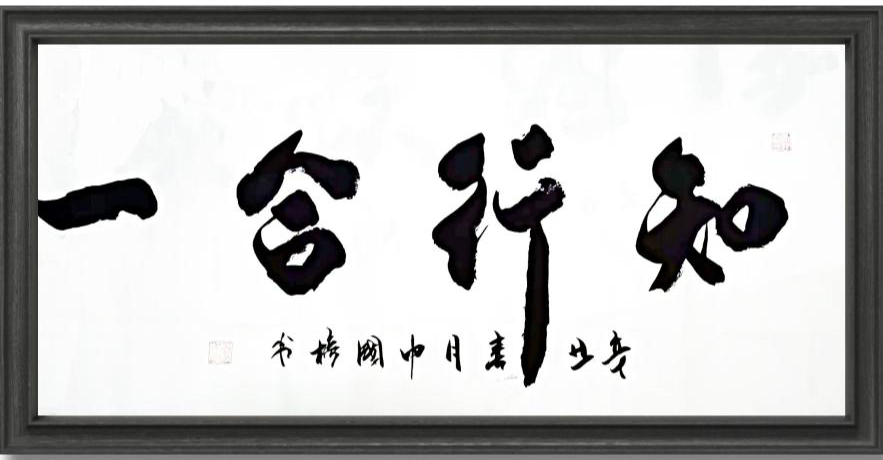 知行合一
辛丑春月中國榜书